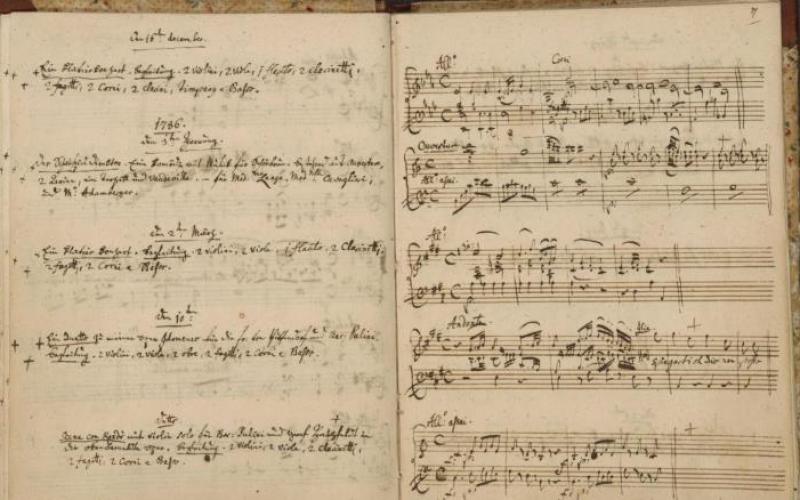 den 16ten december.
Ein klavier konzert. begleitung. 2 violini, 2 viole, 1 flauto, 2 clarinetti,
2 fagotti, 2 Corni, 2 clarini, timpany e Baßo.
1786.
den 3ten
Der Schauspiel director. Eine Komödie mit Musick für Schönbrunn. bestehend aus ouverture,
2 Arien, ein terzett und vaudeville. für Mad:me Lange, Mad:selle Cavaglieri,
und Mr Adamberger.
den 2ten März.
Ein klavier konzert. begleitung. 2 violini, 2 viole, 1 flauto, 2 clarinetti,
2 fagotti, 2 Corni e Baßo.
den 10ten
Ein duetto zu meiner opera Idomeneo für die fr: von Puffendorf und Bar: Pulini
begleitung. 2 violini, 2 viole, 2 oboe, 2 fagotti, 2 Corni e Baßo.
detto
Scena con Rondò mit violin solo für Bar: Pulini und graf Hatzfeld in
die obenbemelte opera. begleitung. 2 violini, 2 viole, 2 clarinetti,
2 fagotti, 2 Corni e Baßo.
7
All:o Corni
Ouverture
All:o assai.
All:o
Andante
spiegarti oh dio non posso
All:o assai.